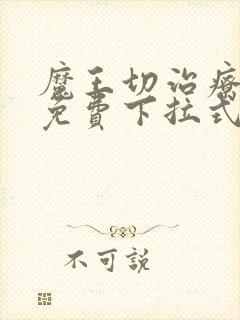 魔王切治療
免費下拉式
不可說